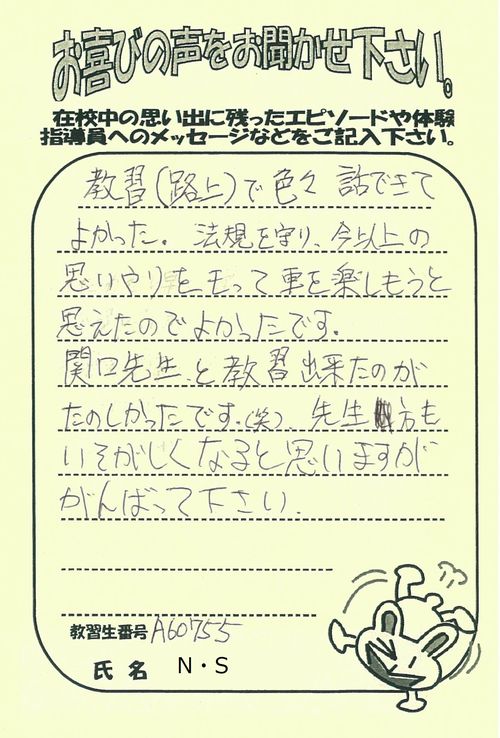 お喜びの声をお聞かせ下さい。
在校中の思い出に残ったエピソードや体験
指導員へのメッセージなどをご記入下さい。
教習(路上)で色々話できて
よかった。法規を守り、今以上の
思いやりをもって車を楽しもうと
思えたのでよかったです。
関口先生と教習出来たのが
たのしかったです。(笑)、先生方も
いそがしくなると思いますが
がんばって下さい.
教習生番号 A60755
氏名 N・S